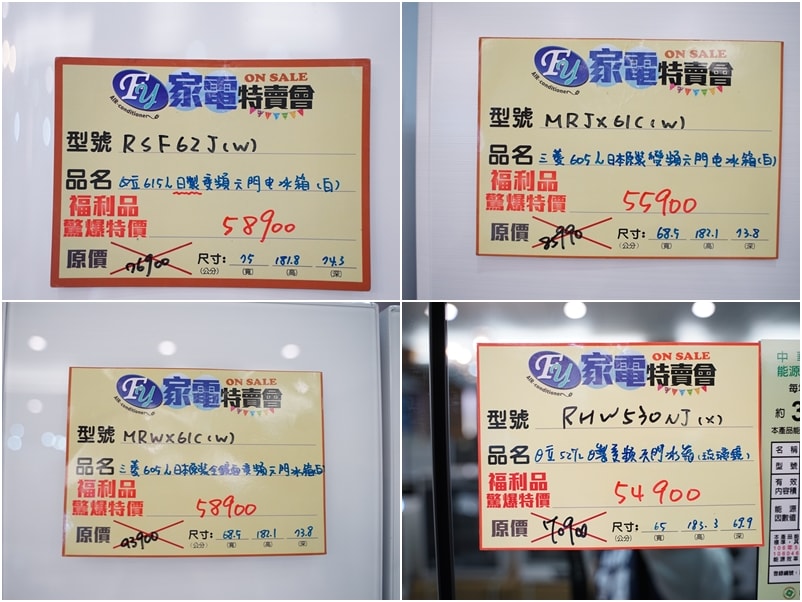 FY 家電特賣會 ON SALE
AIR-conditioner
型號 RSF62J(W)
品名 日立615L日製變頻六門电冰箱(白)
福利品
驚爆特價 58900
原價 76900 尺寸: 75 181.8 74.3
(公分) (寬) (高) (深)
FY 家電特賣會 ON SALE
AIR-conditioner
型號 MRJX61C(W)
品名 三菱605L日本原裝變頻六門电冰箱(白)
福利品
驚爆特價 55900
原價 85990 尺寸: 68.5 182.1 73.8
(公分) (寬) (高) (深)
FY 家電特賣會 ON SALE
AIR-conditioner
型號 MRWX61C(W)
品名 三菱605L日本原裝全鏡面變頻六門冰箱白
福利品
驚爆特價 58900
原價 93900 尺寸: 68.5 182.1 73.8
(公分) (寬) (高) (深)
FY 家電特賣會 ON SALE
AIR-conditioner
型號 RHW530NJ(X)
品名 日立527L日製變頻六門冰箱(琉璃鏡)
福利品
驚爆特價 54900
原價 70900 尺寸: 65 183.3 69.9
(公分) (寬) (高) (深)
中
能源
每
約 3
本產品能
名稱
型號
有效
內容積
能源
因數值